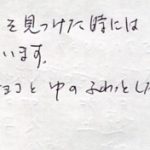 を見つけた時には
います。
ょこと中のふわっとした